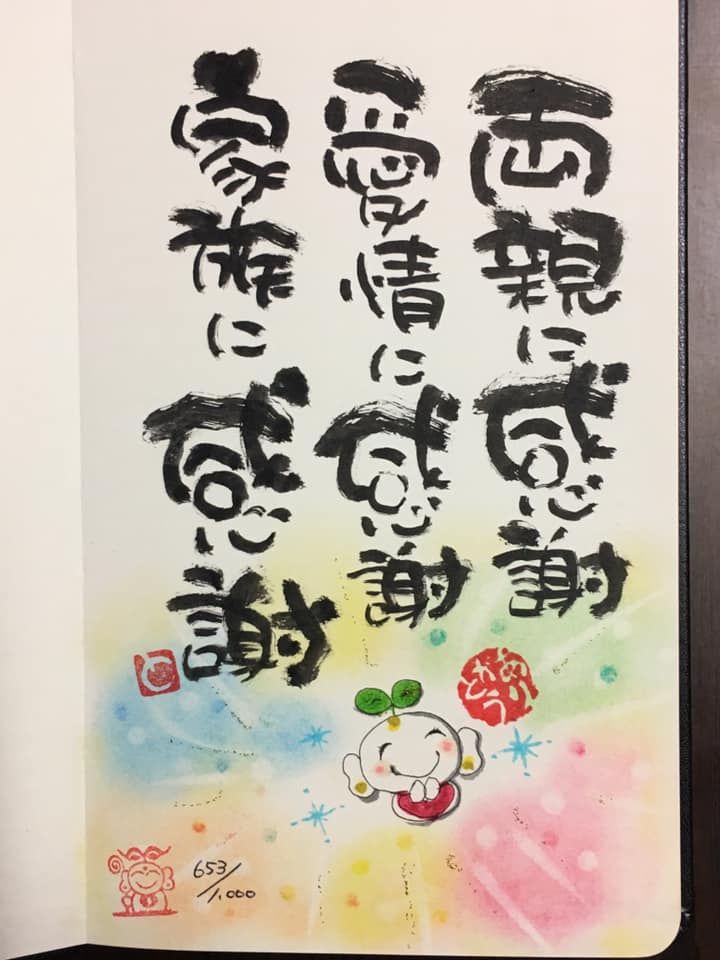 両親に感謝
愛情に感謝
家族に感謝
653/1,000